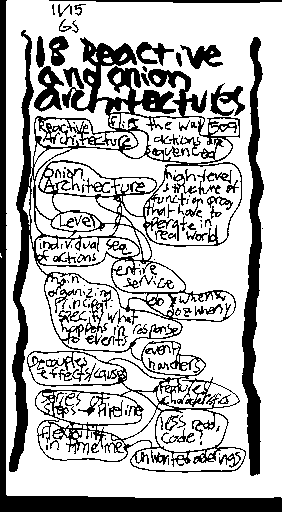 11/15
GS
18 Reactive
and onion
architectures
Reactive
Architecture
flips the way
actions are
sequenced
509
Onion
Architecture
high-level
structure of
function prog
that have to
operate in
real world
Level
individual seq
of actions
entire
service
main
organizing
principal
specify what
happens in response
to events
event
handlers
Decouples
effects/cause
features/
characteristics
series of
steps → Pipeline
less read.
code?
Flexibility
in timeline
unwanted orderings